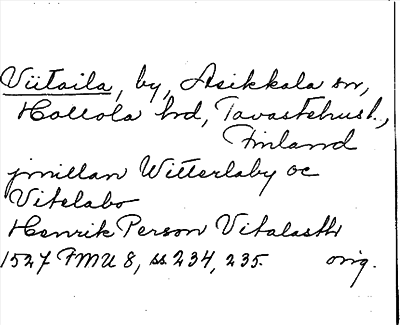 Viitaila, by, Asikkala sn,
Hollola hd, Tavastehus l.,
Finland
jmillan Witterlaby oc
Vitelabo
Henrik Person Vitalasth
1527 FMU 8, ss 234, 235. orig.